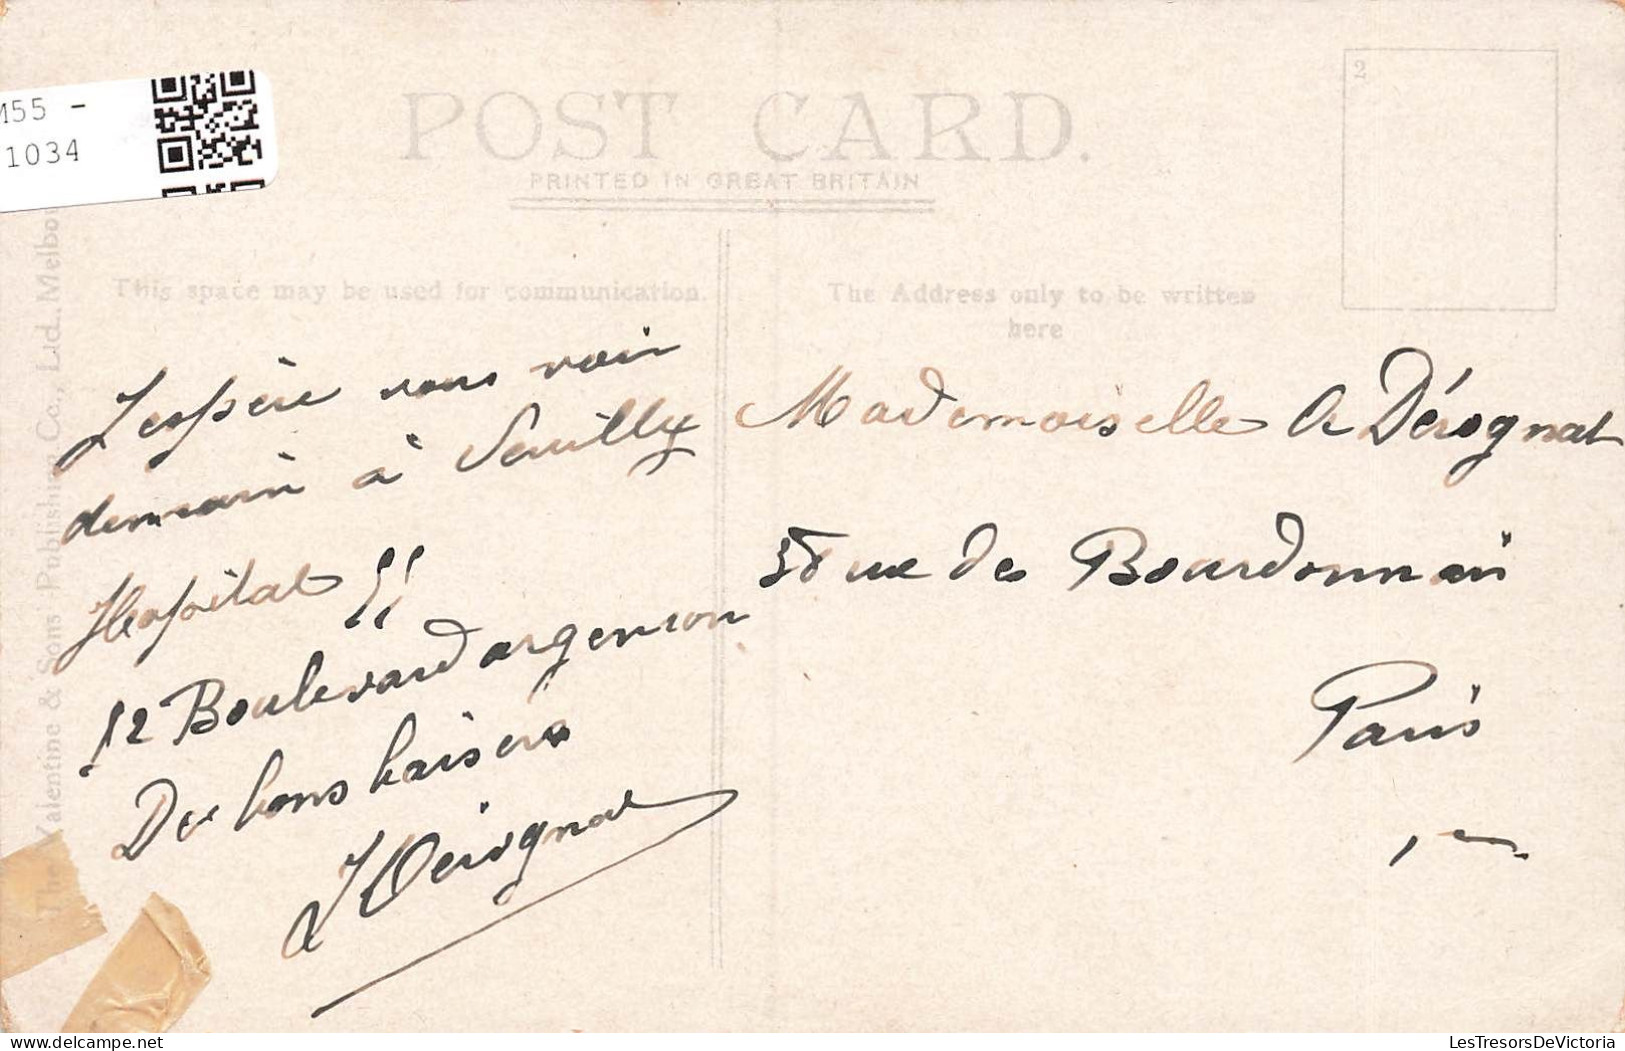 M55 -
1034
POST CARD.
PRINTED IN GREAT BRITAIN
2
This space may be used for communication.
The Address only to be written
here
The Valentine & Sons' Publishing Co., Ltd., Melbou
J'espère vous voir
demain à Neuilly
Hopital
12 Boulevard argenson
De bons baisers
J Dérognat
Mademoiselle A Dérognat
38 rue des Bourdonnais
Paris
LesTresorsDeVictoria